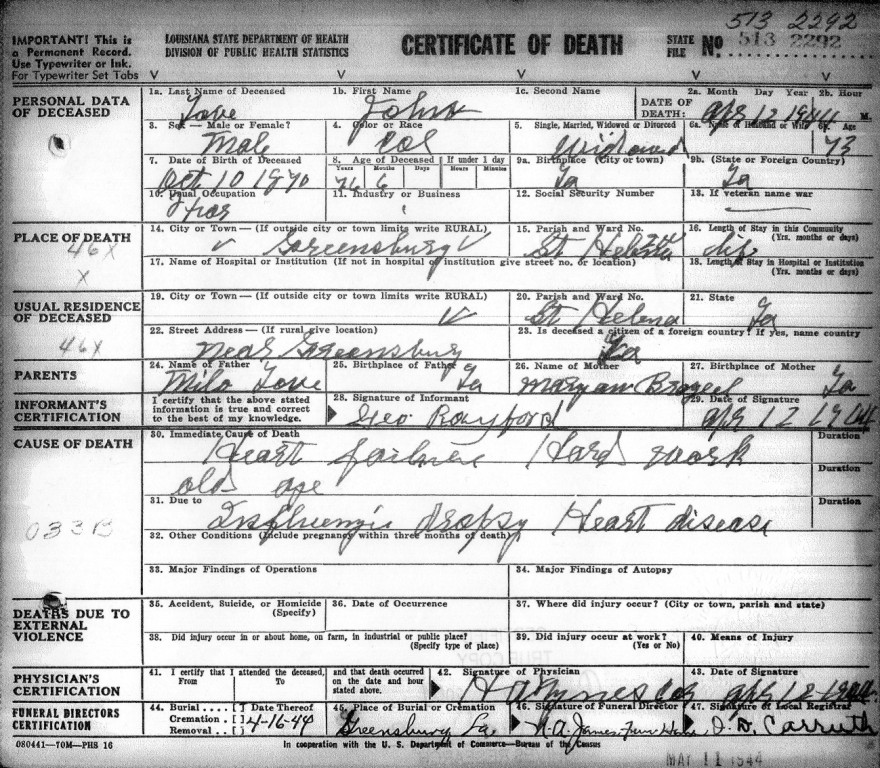 513 2292
IMPORTANT! This is a Permanent Record. Use Typewriter or Ink. For Typewriter Set Tabs
LOUISIANA STATE DEPARTMENT OF HEALTH
DIVISION OF PUBLIC HEALTH STATISTICS
CERTIFICATE OF DEATH
STATE FILE No 513 2292
V V V V V V
PERSONAL DATA OF DECEASED
1a. Last Name of Deceased
1b. First Name John
1c. Second Name
DATE OF DEATH:
2a. Month Day Year Apr 12 1944
2b. Hour M.
3. Sex — Male or Female? Male
4. Color or Race Col
5. Single, Married, Widowed or Divorced Widowed
6a. Name of Husband or Wife
6b. Age 73
7. Date of Birth of Deceased Oct 10 1870
8. Age of Deceased If under 1 day
Years Months Days Hours Minutes
6
9a. Birthplace (City or town) La
9b. (State or Foreign Country) La
10. Usual Occupation
11. Industry or Business
12. Social Security Number
13. If veteran name war
PLACE OF DEATH
46X
X
14. City or Town — (If outside city or town limits write RURAL) Greensburg
15. Parish and Ward No. St Helena
16. Length of Stay in this Community (Yrs. months or days) life
17. Name of Hospital or Institution (If not in hospital or institution give street no. or location)
18. Length of Stay in Hospital or Institution (Yrs. months or days)
USUAL RESIDENCE OF DECEASED
46X
19. City or Town — (If outside city or town limits write RURAL)
20. Parish and Ward No. St Helena
21. State La
22. Street Address — (If rural give location) near Greensburg
23. Is deceased a citizen of a foreign country? If yes, name country La
PARENTS
24. Name of Father Milo
25. Birthplace of Father La
26. Name of Mother Maryan
27. Birthplace of Mother La
INFORMANT'S CERTIFICATION
I certify that the above stated information is true and correct to the best of my knowledge.
28. Signature of Informant Geo Rayford
29. Date of Signature Apr 12 1944
CAUSE OF DEATH
033B
30. Immediate Cause of Death Duration
Heart failure Hard work
Duration
old age
31. Due to Duration
dropsy Heart disease
32. Other Conditions (Include pregnancy within three months of death)
33. Major Findings of Operations
34. Major Findings of Autopsy
DEATHS DUE TO EXTERNAL VIOLENCE
35. Accident, Suicide, or Homicide (Specify)
36. Date of Occurrence
37. Where did injury occur? (City or town, parish and state)
38. Did injury occur in or about home, on farm, in industrial or public place? (Specify type of place)
39. Did injury occur at work? (Yes or No)
40. Means of Injury
TRUE COPY
PHYSICIAN'S CERTIFICATION
41. I certify that I attended the deceased, From To
and that death occurred on the date and hour stated above.
42. Signature of Physician
43. Date of Signature Apr 12-1944
FUNERAL DIRECTORS CERTIFICATION
44. Burial .... [ ] Date Thereof
Cremation . [ ] 4-16-44
Removal .. [ ]
45. Place of Burial or Cremation Greensburg La
46. Signature of Funeral Director N.A. James Fun Home
47. Signature of Local Registrar J. D. Carruth
080441—70M—PHS 16
In cooperation with the U. S. Department of Commerce—Bureau of the Census
MAY 11 1944